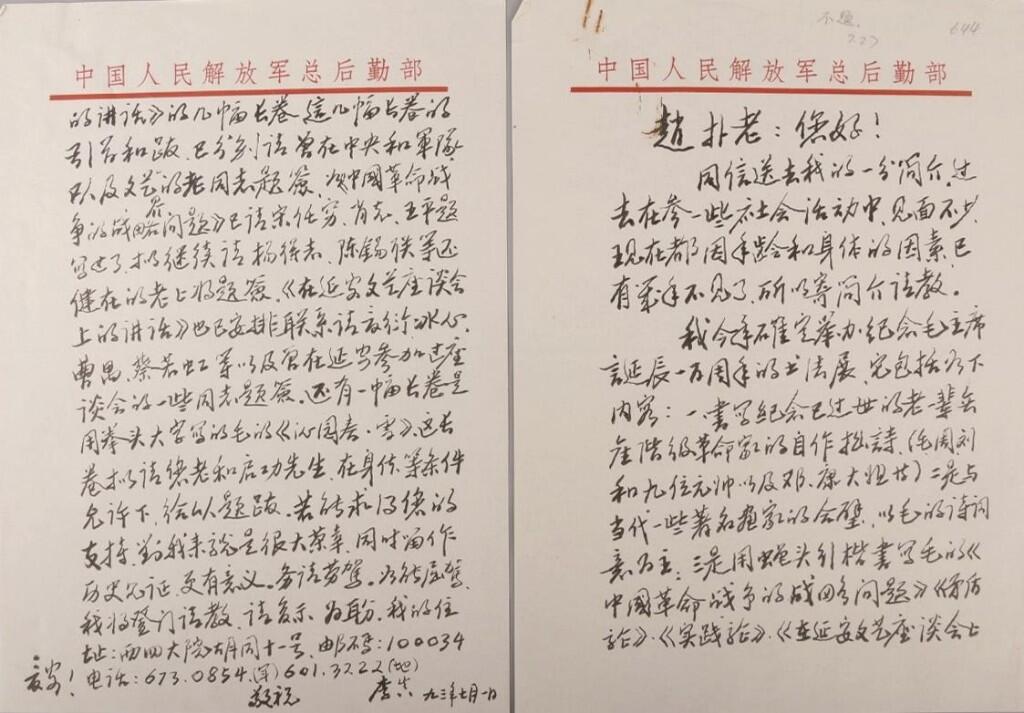 644
中国人民解放军总后勤部
趙朴老：您好！
同信送去我的一份简介,过
去在参一些社会活动中,见面不少,
现在都因年龄和身体的因素已
有几年不见了,所以寄简介请教。
我今年确定举办纪念毛主席
誕辰一百周年的书法展,它包括以下
内容：一、書写纪念已过世的老一輩无
产階级革命家的自作拙詩,(毛周刘
和九位元帅以及邓、康大姐等)二是与
当代一些著名画家的合璧,以毛的诗词
意为主；三是用蝇头引楷書写毛的《
中國革命战争的战略问题》《矛盾
论》.《实践论》.《在延安文艺座谈会上
中国人民解放军总后勤部
的讲话》的几幅长卷,这几幅长卷的
引首和跋,已分别请曾在中央和軍隊
以及文艺的老同志题簽,《中國革命战
争的战略问题》已请宋任穷、肖克、王平题
写过了,拟继续请杨得志、陈錫铁等还
健在的老上将题簽。《在延安文艺座谈会
上的讲话》也已安排联系请夏衍、冰心、
曹禺、蔡若虹等以及曾在延安参加过座
谈会的一些同志题簽。还有一幅长卷是
用拳头大字写的毛的《沁园春·雪》,这长
卷拟请您老和启功先生,在身体等条件
允许下,给以题跋。若能求得您的
支持,對我来说是很大荣幸,同时留作
历史见证,更有意义。务请劳駕。如能屈駕,
我将登门请教,请复示为盼。我的住
址：西四大院胡同十一号,邮码：100034
电话：673.0854.(军)601.3722(地)
敬祝
安！
李 九三年七月一日